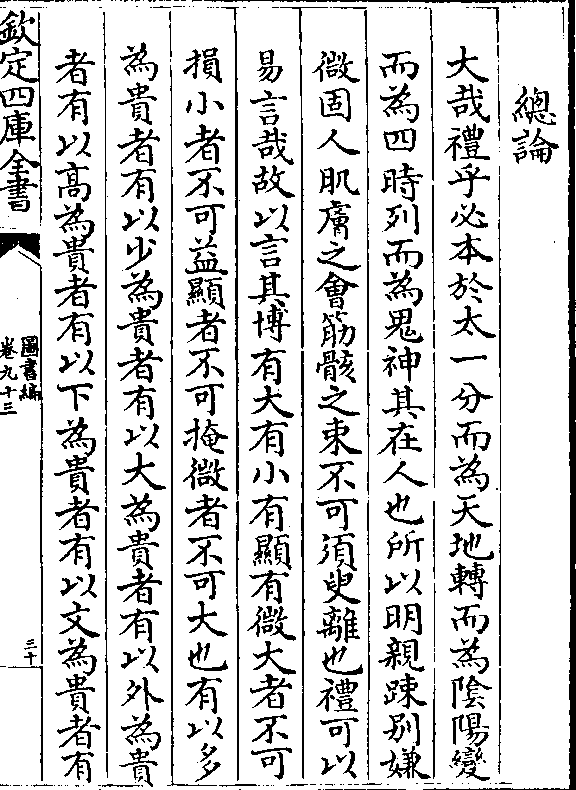 總論
大哉禮乎必本於太一分而為天地轉而為陰陽變
而為四時列而為鬼神其在人也所以明親踈别嫌
微固人肌膚之會筋骸之束不可須臾離也禮可以
易言哉故以言其博有大有小有顯有微大者不可
損小者不可益顯者不可掩微者不可大也有以多
為貴者有以少為貴者有以大為貴者有以外為貴
者有以高為貴者有以下為貴者有以文為貴者有
欽定四庫全書
圖書編
卷九十三
三十